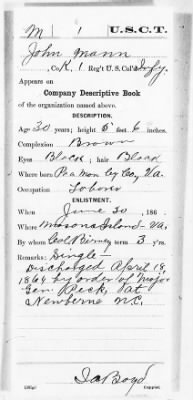 M | 1 | U.S.C.T.
John Mann
, Co. K, 1 Reg't U. S. Col'd Inf'y.
Appears on
Company Descriptive Book
of the organization named above.
DESCRIPTION.
Age 30 years; height 5 feet 6 inches.
Complexion Brown
Eyes Black; hair Black
Where born Co, Va.
Occupation Labor
ENLISTMENT.
When June 30, 186
Where Masons Island - Va.
By whom Col Birney term 3 y'rs.
Remarks: Single -
Discharged April 18,
1864 by order of Major
Gen. Peck, at
Newberne N.C.
Boyd
Copyist.